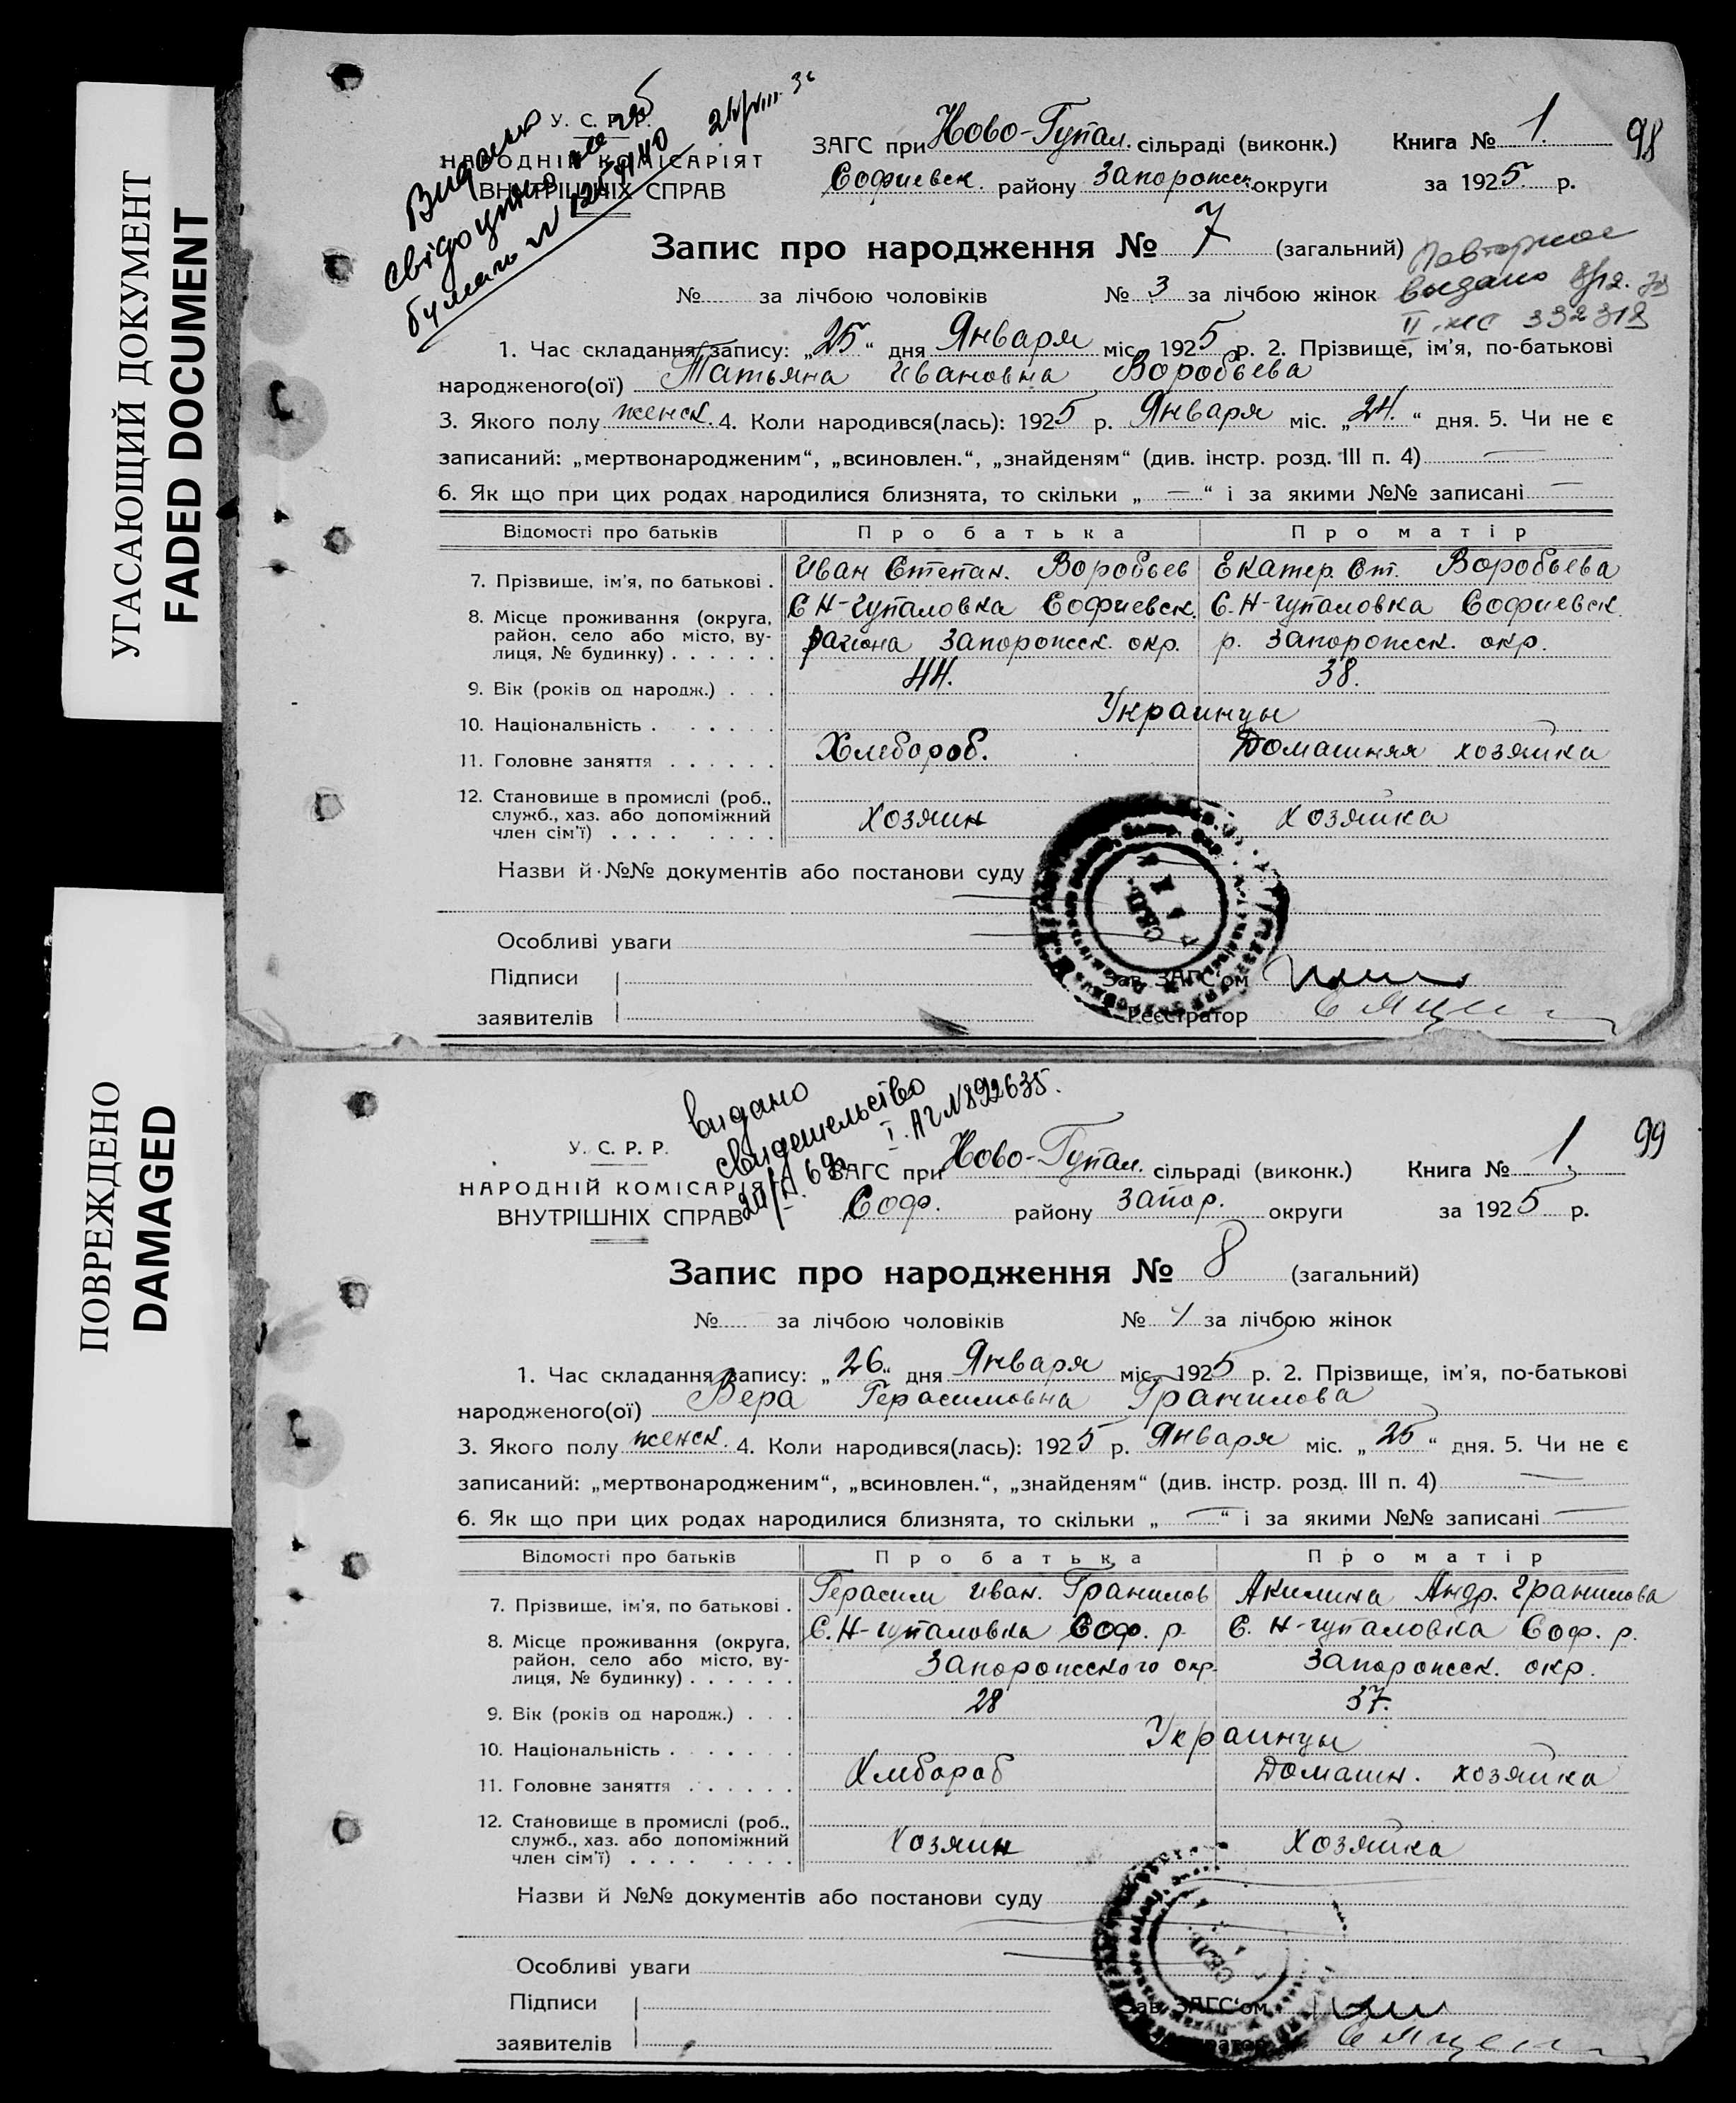 УГАСАЮЩИЙ ДОКУМЕНТ
FADED DOCUMENT
ПОВРЕЖДЕНО
DAMAGED
Видано
свідоцтво
бумага № 1259140
У. С. Р. Р.
НАРОДНІЙ КОМІСАРІЯТ
ВНУТРІШНІХ СПРАВ
ЗАГС при Ново-Гупал. сільраді (виконк.) Книга № 1. 98
Софиевск. району Запорожск. округи за 1925 р.
Запис про народження № 7 (загальний)
Повторное
выдано 8/12. 73
№ за лічбою чоловіків № 3 за лічбою жінок
II
1. Час складання запису: „25“ дня Января міс. 1925 р. 2. Прізвище, ім’я, по-батькові
народженого(ої) Татьяна Ивановна Воробьева
3. Якого полу женск. 4. Коли народився(лась): 1925 р. Января міс. „24.“ дня. 5. Чи не є
записаний: „мертвонародженим“, „всиновлен.“, „знайденям“ (див. інстр. розд. III п. 4) —
6. Як що при цих родах народилися близнята, то скільки „ — “ і за якими №№ записані —
Відомості про батьків Про батька Про матір
7. Прізвише, ім’я, по батькові . Иван Степан. Воробьев Екатер. Ст. Воробьева
8. Місце проживання (округа, район, село або місто, вулиця, № будинку) . . . . . . С Н-Гупаловка Софиевск. С. Н-Гупаловка Софиевск.
района Запорожск. окр. р. Запорожск. окр.
9. Вік (років од народж.) . . . 44. 38.
10. Національність . . . . . . Украинцы
11. Головне заняття . . . . . . Хлебороб. Домашняя хозяйка
12. Становище в промислі (роб., служб., хаз. або допоміжний член сім’ї) . . . . . . . . Хозяин Хозяйка
Назви й №№ документів або постанови суду
Особливі уваги
Підписи
заявителів
Зав. ЗАГС‘ом
Реєстратор
видано
свидетельство
I. АГ № 892635.
У. С. Р. Р.
НАРОДНІЙ КОМІСАРІЯТ
ВНУТРІШНІХ СПРАВ
ЗАГС при Ново-Гупал. сільраді (виконк.) Книга № 1. 99
Соф. району Запор. округи за 1925 р.
Запис про народження № 8 (загальний)
№ за лічбою чоловіків № 4 за лічбою жінок
1. Час складання запису: „26“ дня Января міс. 1925 р. 2. Прізвище, ім’я, по-батькові
народженого(ої) Вера Герасимовна Гранилова
3. Якого полу женск. 4. Коли народився(лась): 1925 р. Января міс. „25“ дня. 5. Чи не є
записаний: „мертвонародженим“, „всиновлен.“, „знайденям“ (див. інстр. розд. III п. 4) —
6. Як що при цих родах народилися близнята, то скільки „ — “ і за якими №№ записані —
Відомості про батьків Про батька Про матір
7. Прізвише, ім’я, по батькові . Герасим Иван. Гранилов Акилина Андр. Гранилова
8. Місце проживання (округа, район, село або місто, вулиця, № будинку) . . . . . . С. Н-Гупаловка Соф. р. С. Н-Гупаловка Соф. р.
Запорожского окр. Запорожск. окр.
9. Вік (років од народж.) . . . 28 37.
10. Національність . . . . . . Украинцы
11. Головне заняття . . . . . . Хлебороб Домашн. хозяйка
12. Становище в промислі (роб., служб., хаз. або допоміжний член сім’ї) . . . . . . . . Хозяин Хозяйка
Назви й №№ документів або постанови суду
Особливі уваги
Підписи
заявителів
Зав. ЗАГС‘ом